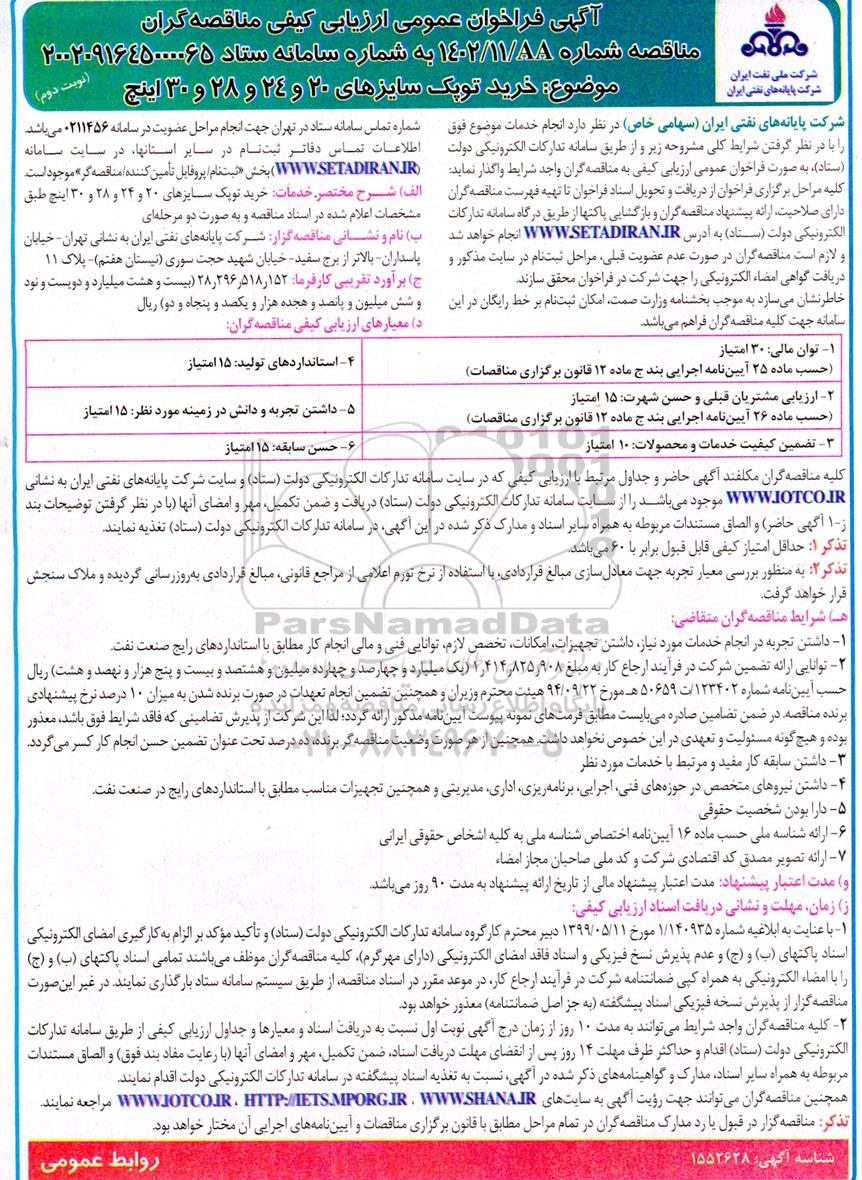 آگهی فراخوان عمومی ارزیابی کیفی مناقصه‌گران
مناقصه شماره ۱۴۰۲/۱۱/AA به شماره سامانه ستاد ۲۰۰۲۰۹۱۶۴۵۰۰۰۰۶۵
موضوع: خرید توپک سایزهای ۲۰ و ۲۴ و ۲۸ و ۳۰ اینچ
(نوبت دوم)
شرکت ملی نفت ایران
شرکت پایانه‌های نفتی ایران
شرکت پایانه‌های نفتی ایران (سهامی خاص) در نظر دارد انجام خدمات موضوع فوق
را با در نظر گرفتن شرایط کلی مشروحه زیر و از طریق سامانه تدارکات الکترونیکی دولت
(ستاد)، به صورت فراخوان عمومی ارزیابی کیفی به مناقصه‌گران واجد شرایط واگذار نماید:
کلیه مراحل برگزاری فراخوان از دریافت و تحویل اسناد فراخوان تا تهیه فهرست مناقصه‌گران
دارای صلاحیت، ارائه پیشنهاد مناقصه‌گران و بازگشایی پاکتها از طریق درگاه سامانه تدارکات
الکترونیکی دولت (ستاد) به آدرس WWW.SETADIRAN.IR انجام خواهد شد
و لازم است مناقصه‌گران در صورت عدم عضویت قبلی، مراحل ثبت‌نام در سایت مذکور و
دریافت گواهی امضاء الکترونیکی را جهت شرکت در فراخوان محقق سازند.
خاطرنشان می‌سازد به موجب بخشنامه وزارت صمت، امکان ثبت‌نام بر خط رایگان در این
سامانه جهت کلیه مناقصه‌گران فراهم می‌باشد.
شماره تماس سامانه ستاد در تهران جهت انجام مراحل عضویت در سامانه ۰۲۱۱۴۵۶ می‌باشد.
اطلاعات تماس دفاتر ثبت‌نام در سایر استانها، در سایت سامانه
(WWW.SETADIRAN.IR) بخش «ثبت‌نام/پروفایل تأمین‌کننده/مناقصه‌گر» موجود است.
الف) شرح مختصر خدمات: خرید توپک سایزهای ۲۰ و ۲۴ و ۲۸ و ۳۰ اینچ طبق
مشخصات اعلام شده در اسناد مناقصه و به صورت دو مرحله‌ای
ب) نام و نشانی مناقصه‌گزار: شرکت پایانه‌های نفتی ایران به نشانی تهران- خیابان
پاسداران- بالاتر از برج سفید- خیابان شهید حجت سوری (نیستان هفتم)- پلاک ۱۱
ج) برآورد تقریبی کارفرما: ۲۸٫۲۹۶٫۵۱۸٫۱۵۲ (بیست و هشت میلیارد و دویست و نود
و شش میلیون و پانصد و هجده هزار و یکصد و پنجاه و دو) ریال
د) معیارهای ارزیابی کیفی مناقصه‌گران:
۱- توان مالی: ۳۰ امتیاز
(حسب ماده ۲۵ آیین‌نامه اجرایی بند ج ماده ۱۲ قانون برگزاری مناقصات)
۴- استانداردهای تولید: ۱۵ امتیاز
۲- ارزیابی مشتریان قبلی و حسن شهرت: ۱۵ امتیاز
(حسب ماده ۲۶ آیین‌نامه اجرایی بند ج ماده ۱۲ قانون برگزاری مناقصات)
۵- داشتن تجربه و دانش در زمینه مورد نظر: ۱۵ امتیاز
۳- تضمین کیفیت خدمات و محصولات: ۱۰ امتیاز
۶- حسن سابقه: ۱۵ امتیاز
کلیه مناقصه‌گران مکلفند آگهی حاضر و جداول مرتبط با ارزیابی کیفی که در سایت سامانه تدارکات الکترونیکی دولت (ستاد) و سایت شرکت پایانه‌های نفتی ایران به نشانی
WWW.IOTCO.IR موجود می‌باشد را از سایت سامانه تدارکات الکترونیکی دولت (ستاد) دریافت و ضمن تکمیل، مهر و امضای آنها (با در نظر گرفتن توضیحات بند
ز-۱ آگهی حاضر) و الصاق مستندات مربوطه به همراه سایر اسناد و مدارک ذکر شده در این آگهی، در سامانه تدارکات الکترونیکی دولت (ستاد) تغذیه نمایند.
تذکر ۱: حداقل امتیاز کیفی قابل قبول برابر با ۶۰ می‌باشد.
تذکر ۲: به منظور بررسی معیار تجربه جهت معادل‌سازی مبالغ قراردادی، با استفاده از نرخ تورم اعلامی از مراجع قانونی، مبالغ قراردادی به‌روزرسانی گردیده و ملاک سنجش
قرار خواهد گرفت.
ParsNamadData
هـ) شرایط مناقصه‌گران متقاضی:
۱- داشتن تجربه در انجام خدمات مورد نیاز، داشتن تجهیزات، امکانات، تخصص لازم، توانایی فنی و مالی انجام کار مطابق با استانداردهای رایج صنعت نفت.
۲- توانایی ارائه تضمین شرکت در فرآیند ارجاع کار به مبلغ ۱٫۴۱۴٫۸۲۵٫۹۰۸ (یک میلیارد و چهارصد و چهارده میلیون و هشتصد و بیست و پنج هزار و نهصد و هشت) ریال
حسب آیین‌نامه شماره ۱۲۳۴۰۲/ت ۵۰۶۵۹ هـ مورخ ۹۴/۰۹/۲۲ هیئت محترم وزیران و همچنین تضمین انجام تعهدات در صورت برنده شدن به میزان ۱۰ درصد نرخ پیشنهادی
برنده مناقصه. در ضمن تضامین صادره می‌بایست مطابق فرمت‌های نمونه پیوست آیین‌نامه مذکور ارائه گردد؛ لذا این شرکت از پذیرش تضامینی که فاقد شرایط فوق باشد، معذور
بوده و هیچ‌گونه مسئولیت و تعهدی در این خصوص نخواهد داشت. همچنین از هر صورت وضعیت مناقصه‌گر برنده، ده درصد تحت عنوان تضمین حسن انجام کار کسر می‌گردد.
پایگاه اطلاع رسانی مناقصه و مزایده
۰۲۱-۸۸۳۴۹۶۷۰-۵
۳- داشتن سابقه کار مفید و مرتبط با خدمات مورد نظر
۴- داشتن نیروهای متخصص در حوزه‌های فنی، اجرایی، برنامه‌ریزی، اداری، مدیریتی و همچنین تجهیزات مناسب مطابق با استانداردهای رایج در صنعت نفت.
۵- دارا بودن شخصیت حقوقی
۶- ارائه شناسه ملی حسب ماده ۱۶ آیین‌نامه اختصاص شناسه ملی به کلیه اشخاص حقوقی ایرانی
۷- ارائه تصویر مصدق کد اقتصادی شرکت و کد ملی صاحبان مجاز امضاء
و) مدت اعتبار پیشنهاد: مدت اعتبار پیشنهاد مالی از تاریخ ارائه پیشنهاد به مدت ۹۰ روز می‌باشد.
ز) زمان، مهلت و نشانی دریافت اسناد ارزیابی کیفی:
۱- با عنایت به ابلاغیه شماره ۱/۱۴۰۹۳۵ مورخ ۱۳۹۹/۰۵/۱۱ دبیر محترم کارگروه سامانه تدارکات الکترونیکی دولت (ستاد) و تأکید مؤکد بر الزام به‌کارگیری امضای الکترونیکی
اسناد پاکتهای (ب) و (ج) و عدم پذیرش نسخ فیزیکی و اسناد فاقد امضای الکترونیکی (دارای مهر گرم)، کلیه مناقصه‌گران موظف می‌باشند تمامی اسناد پاکتهای (ب) و (ج)
را با امضاء الکترونیکی به همراه کپی ضمانتنامه شرکت در فرآیند ارجاع کار، در موعد مقرر در اسناد مناقصه، از طریق سیستم سامانه ستاد بارگذاری نمایند. در غیر این‌صورت
مناقصه‌گزار از پذیرش نسخه فیزیکی اسناد پیشگفته (به جز اصل ضمانتنامه) معذور خواهد بود.
۲- کلیه مناقصه‌گران واجد شرایط می‌توانند به مدت ۱۰ روز از زمان درج آگهی نوبت اول نسبت به دریافت اسناد و معیارها و جداول ارزیابی کیفی از طریق سامانه تدارکات
الکترونیکی دولت (ستاد) اقدام و حداکثر ظرف مهلت ۱۴ روز پس از انقضای مهلت دریافت اسناد، ضمن تکمیل، مهر و امضای آنها (با رعایت مفاد بند فوق) و الصاق مستندات
مربوطه به همراه سایر اسناد، مدارک و گواهینامه‌های ذکر شده در آگهی، نسبت به تغذیه اسناد پیشگفته در سامانه تدارکات الکترونیکی دولت اقدام نمایند.
همچنین مناقصه‌گران می‌توانند جهت رؤیت آگهی به سایت‌های WWW.SHANA.IR ، HTTP://IETS.MPORG.IR ، WWW.IOTCO.IR مراجعه نمایند.
تذکر: مناقصه‌گزار در قبول یا رد مدارک مناقصه‌گران در تمام مراحل مطابق با قانون برگزاری مناقصات و آیین‌نامه‌های اجرایی آن مختار خواهد بود.
شناسه آگهی: ۱۵۵۲۶۲۸
روابط عمومی